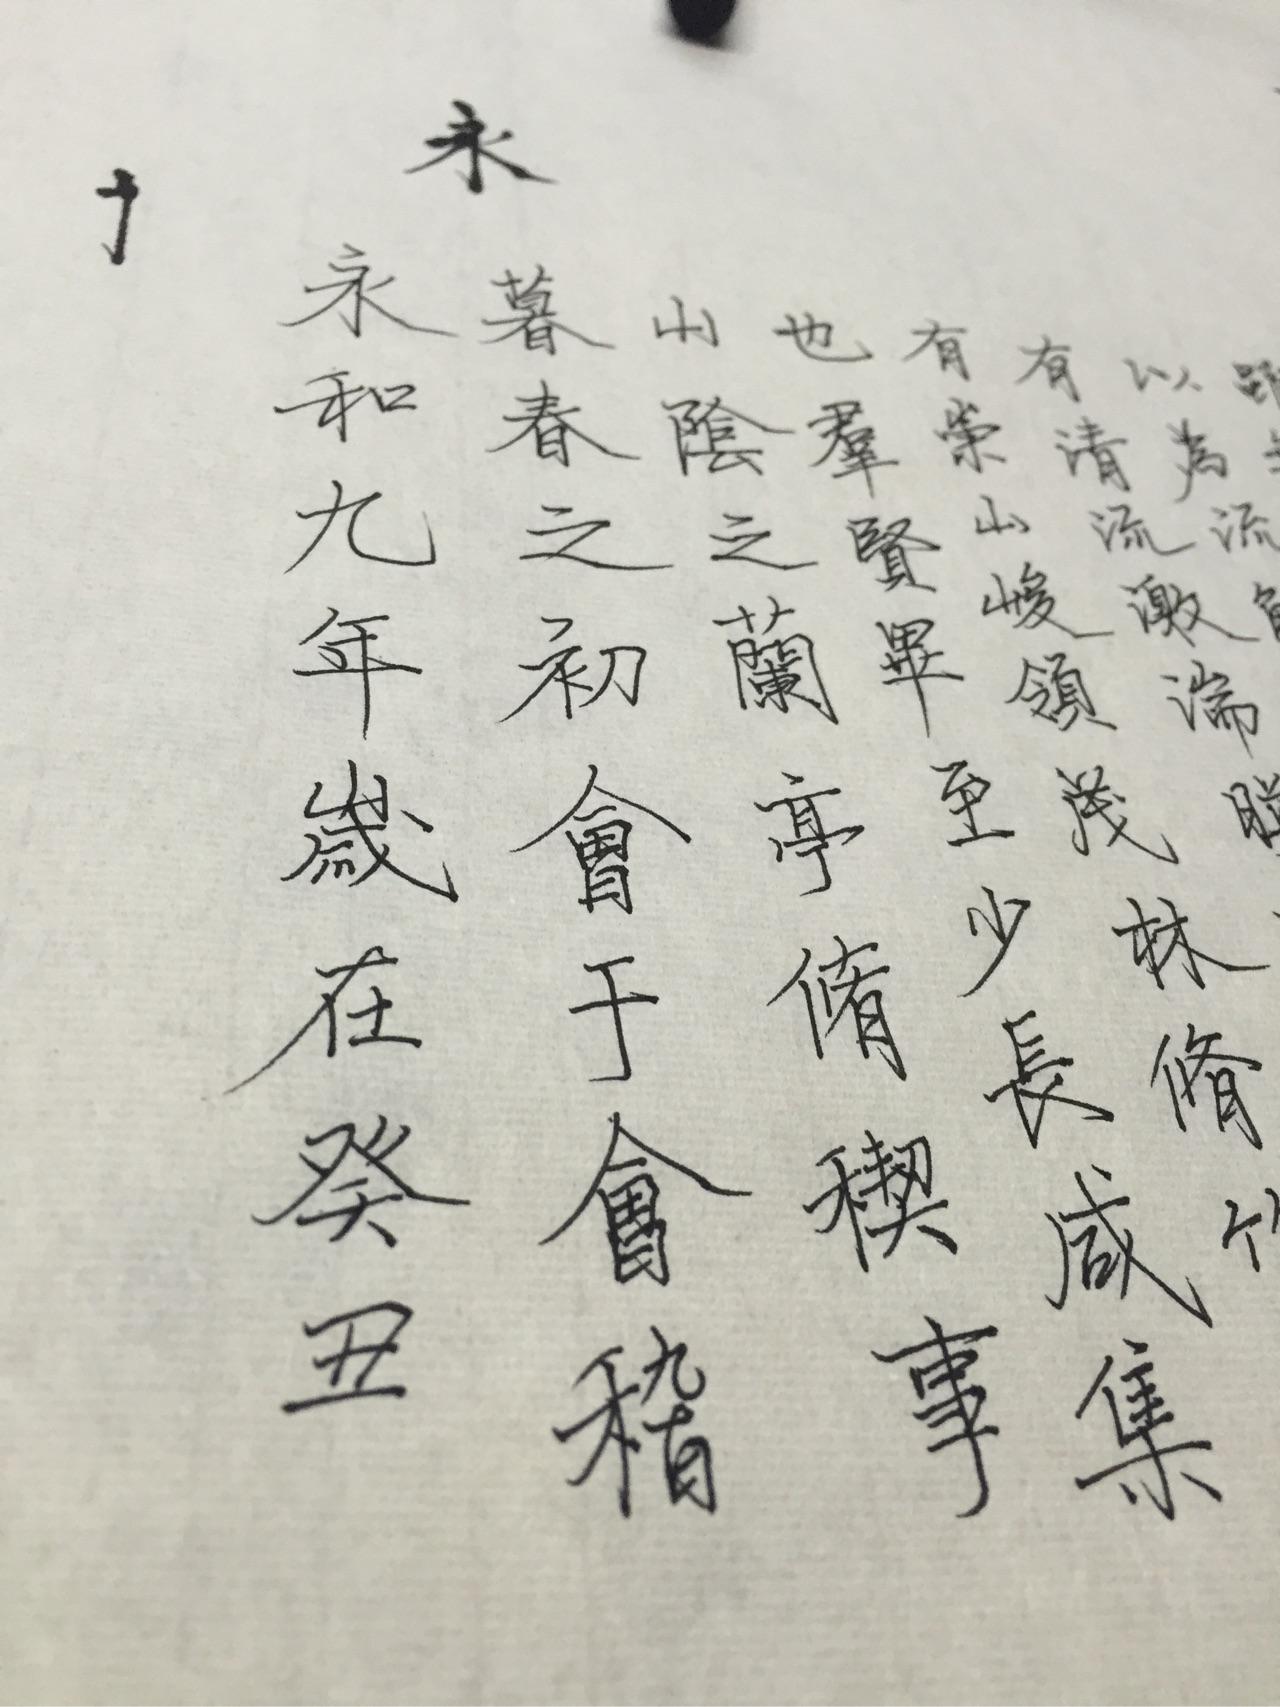 永
永和九年歲在癸丑
暮春之初會于會稽
山陰之蘭亭脩稧事
也羣賢畢至少長咸集
有崇山峻領茂林脩竹
有清流激湍暎
以為流